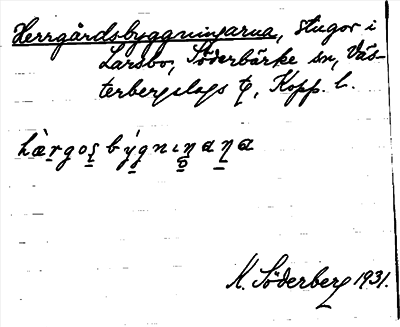 Herrgårdsbyggningarna, stugor i
Larsbo, Söderbärke sn, Väs-
terbergslags tg, Kopp. l.
hæ̀rgoʂbýgnıŋana
K. Söderberg 1931.